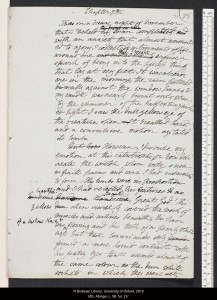 Chapter 7th
It was on a dreary night of November
that I beheld my man completed and
with an anxiety that almost amount
ed to agony I collected instruments of life
around me that I might infuse a
spark of being into the lifeless thing
that lay at my feet. It was already
one in the morning, the rain pattered
dismally against the window panes &
my candle was nearly burnt out when
by the glimmer of the half extinguish
ed light I saw the dull yellow eye of
the creature open. It breathed hard,
and a convulsive motion agitated
its limbs.
But how How can I describe my
emotion at this catastrophe; or how delin
eate the wretch whom with such
infinite pains and care I had endeavour
ed to form. His limbs were in proportion
and I had selected his features as
beautiful
handsome Handsome; Great God! His
yellow skin scarcely covered the work of
muscles and arteries beneath; his hair
of a lustrous black &
was flowing and his teeth of a pearly white
ness but these luxuriances only
formed a more horrid contrast with
his watry eyes that seemed almost of
the same colour as the dun white
sockets in which they were set,
© Bodleian Library, University of Oxford, 2010
MS. Abinger c. 56, fol. 21r